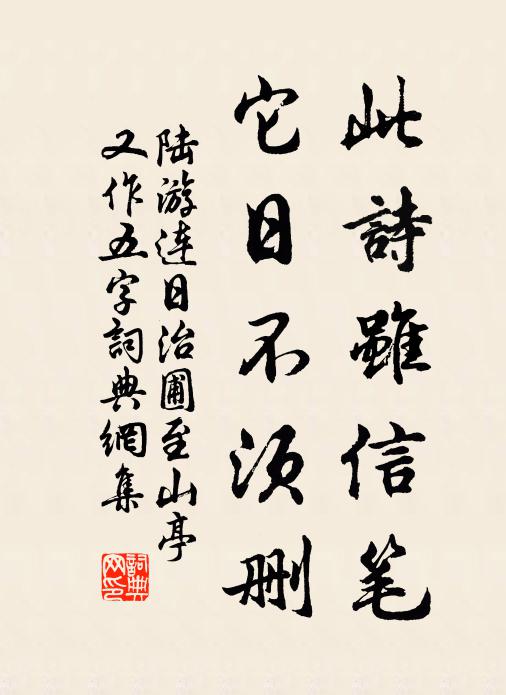 此詩雖信笔
它日不須删
陆游连日治圃至山亭
又作五字詞典網集
詞典
网印